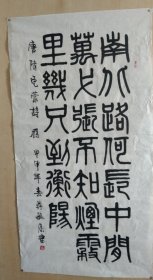 南北路何長中間
萬弋張不知煙霧
里幾只到衡陽
唐陸龜蒙詩雁 甲申年春